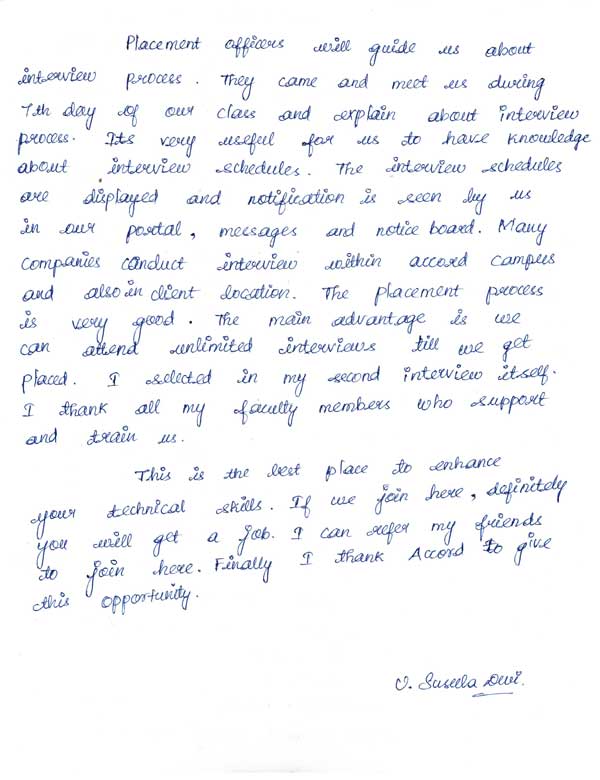 Placement officers will guide us about
interview process. They came and meet us during
7th day of our class and explain about interview
process. Its very useful for us to have knowledge
about interview schedules. The interview schedules
are displayed and notification is seen by us
in our portal, messages and notice board. Many
companies conduct interview within accord campus
and also in client location. The placement process
is very good. The main advantage is we
can attend unlimited interviews till we get
placed. I selected in my second interview itself.
I thank all my faculty members who support
and train us.
This is the best place to enhance
your technical skills. If we join here, definitely
you will get a job. I can refer my friends
to join here. Finally I thank Accord to give
this opportunity.
V. Suseela Devi.